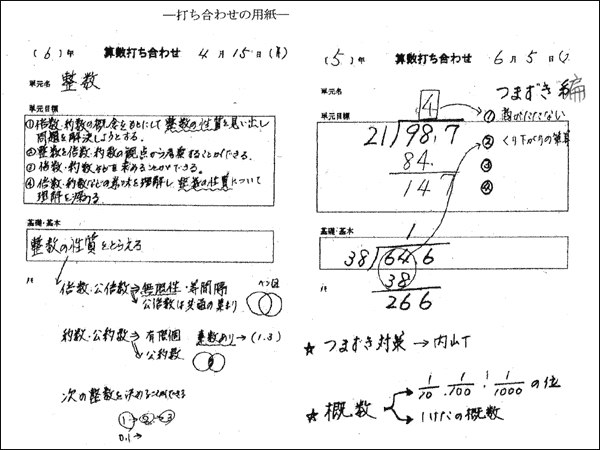 ―打ち合わせの用紙―
(6)年 算数打ち合わせ 4月15日(月)
単元名 整数
単元目標
①倍数・約数の概念をもとにして整数の性質を見い出し
問題を解決しようとする。
②整数を倍数・約数の観点から考察することができる。
③倍数・約数などを求めることができる。
④倍数・約数などの意味を理解し、整数の性質について
理解を深める
基礎・基本
整数の性質をとらえる
倍数・公倍数→無限性・等間隔 ベン図
公倍数は共通の集まり
約数・公約数→有限個 素数あり→(1.3)
公約数
次の整数を決めることができる
①→②→③
0.1→
(5)年 算数打ち合わせ 6月5日
単元名 つまずき編
単元目標
4 ① 商がたたない
21 98.7 ② くり下がりの計算
84. ③
14 7 ④
基礎・基本
1
38 64.6
38
26 6
★つまずき対策→内山T
★概数→1/10・1/100・1/1000の位
1けたの概数